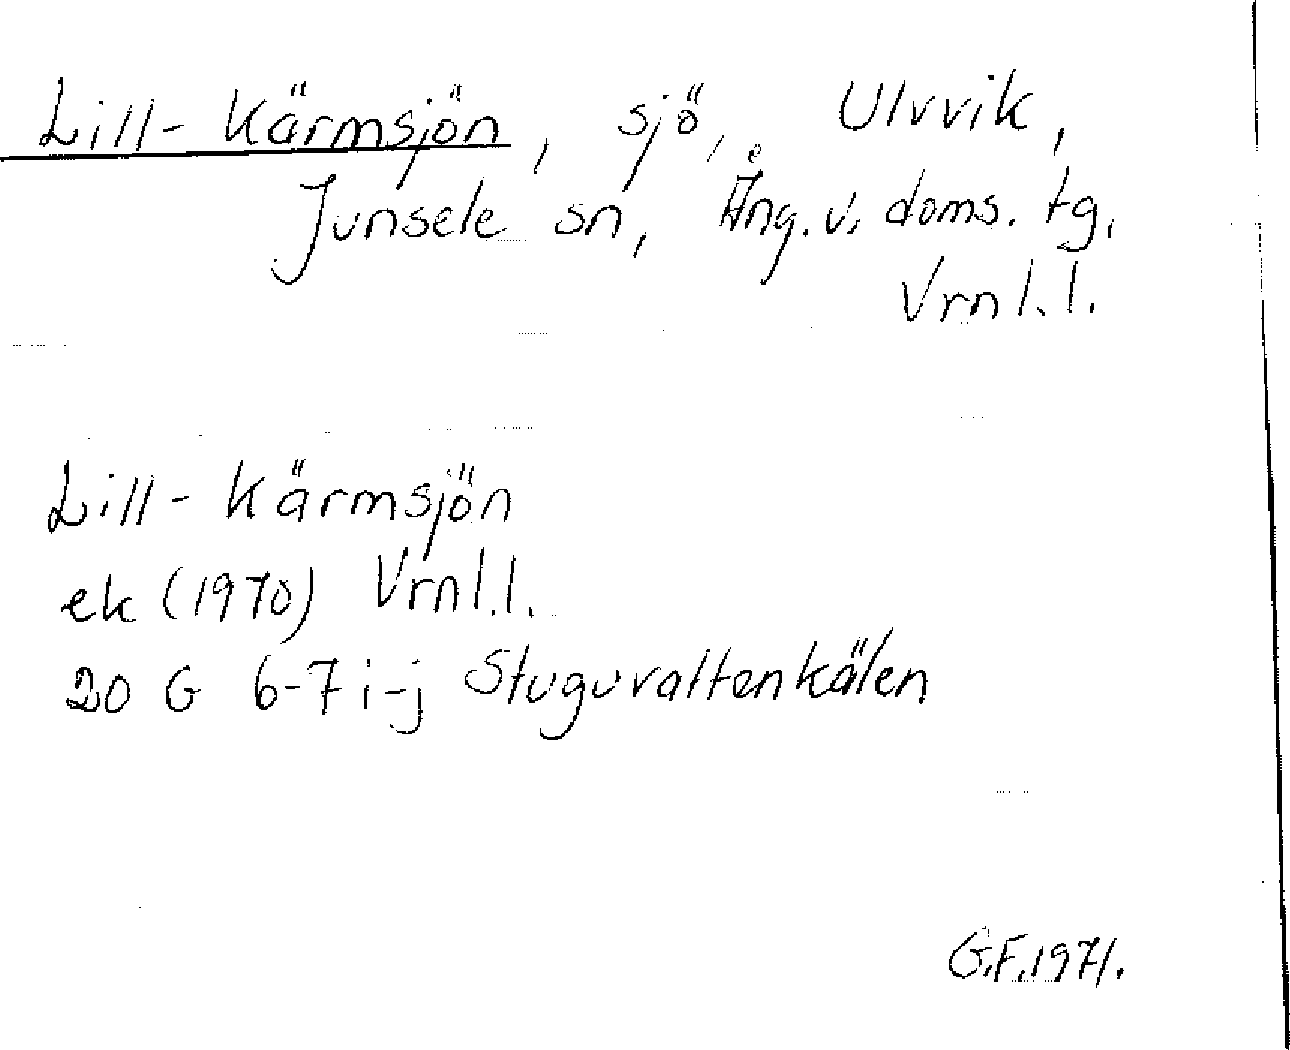 Lill-Kärmsjön, sjö, Ulvvik,
Junsele sn, Ång. v. doms. tg.
Vrnl. l.
Lill-Kärmsjön
ek (1970) Vrnl. l.
20 G 6-7 i-j Stuguvattenkälen
G.F. 1971.